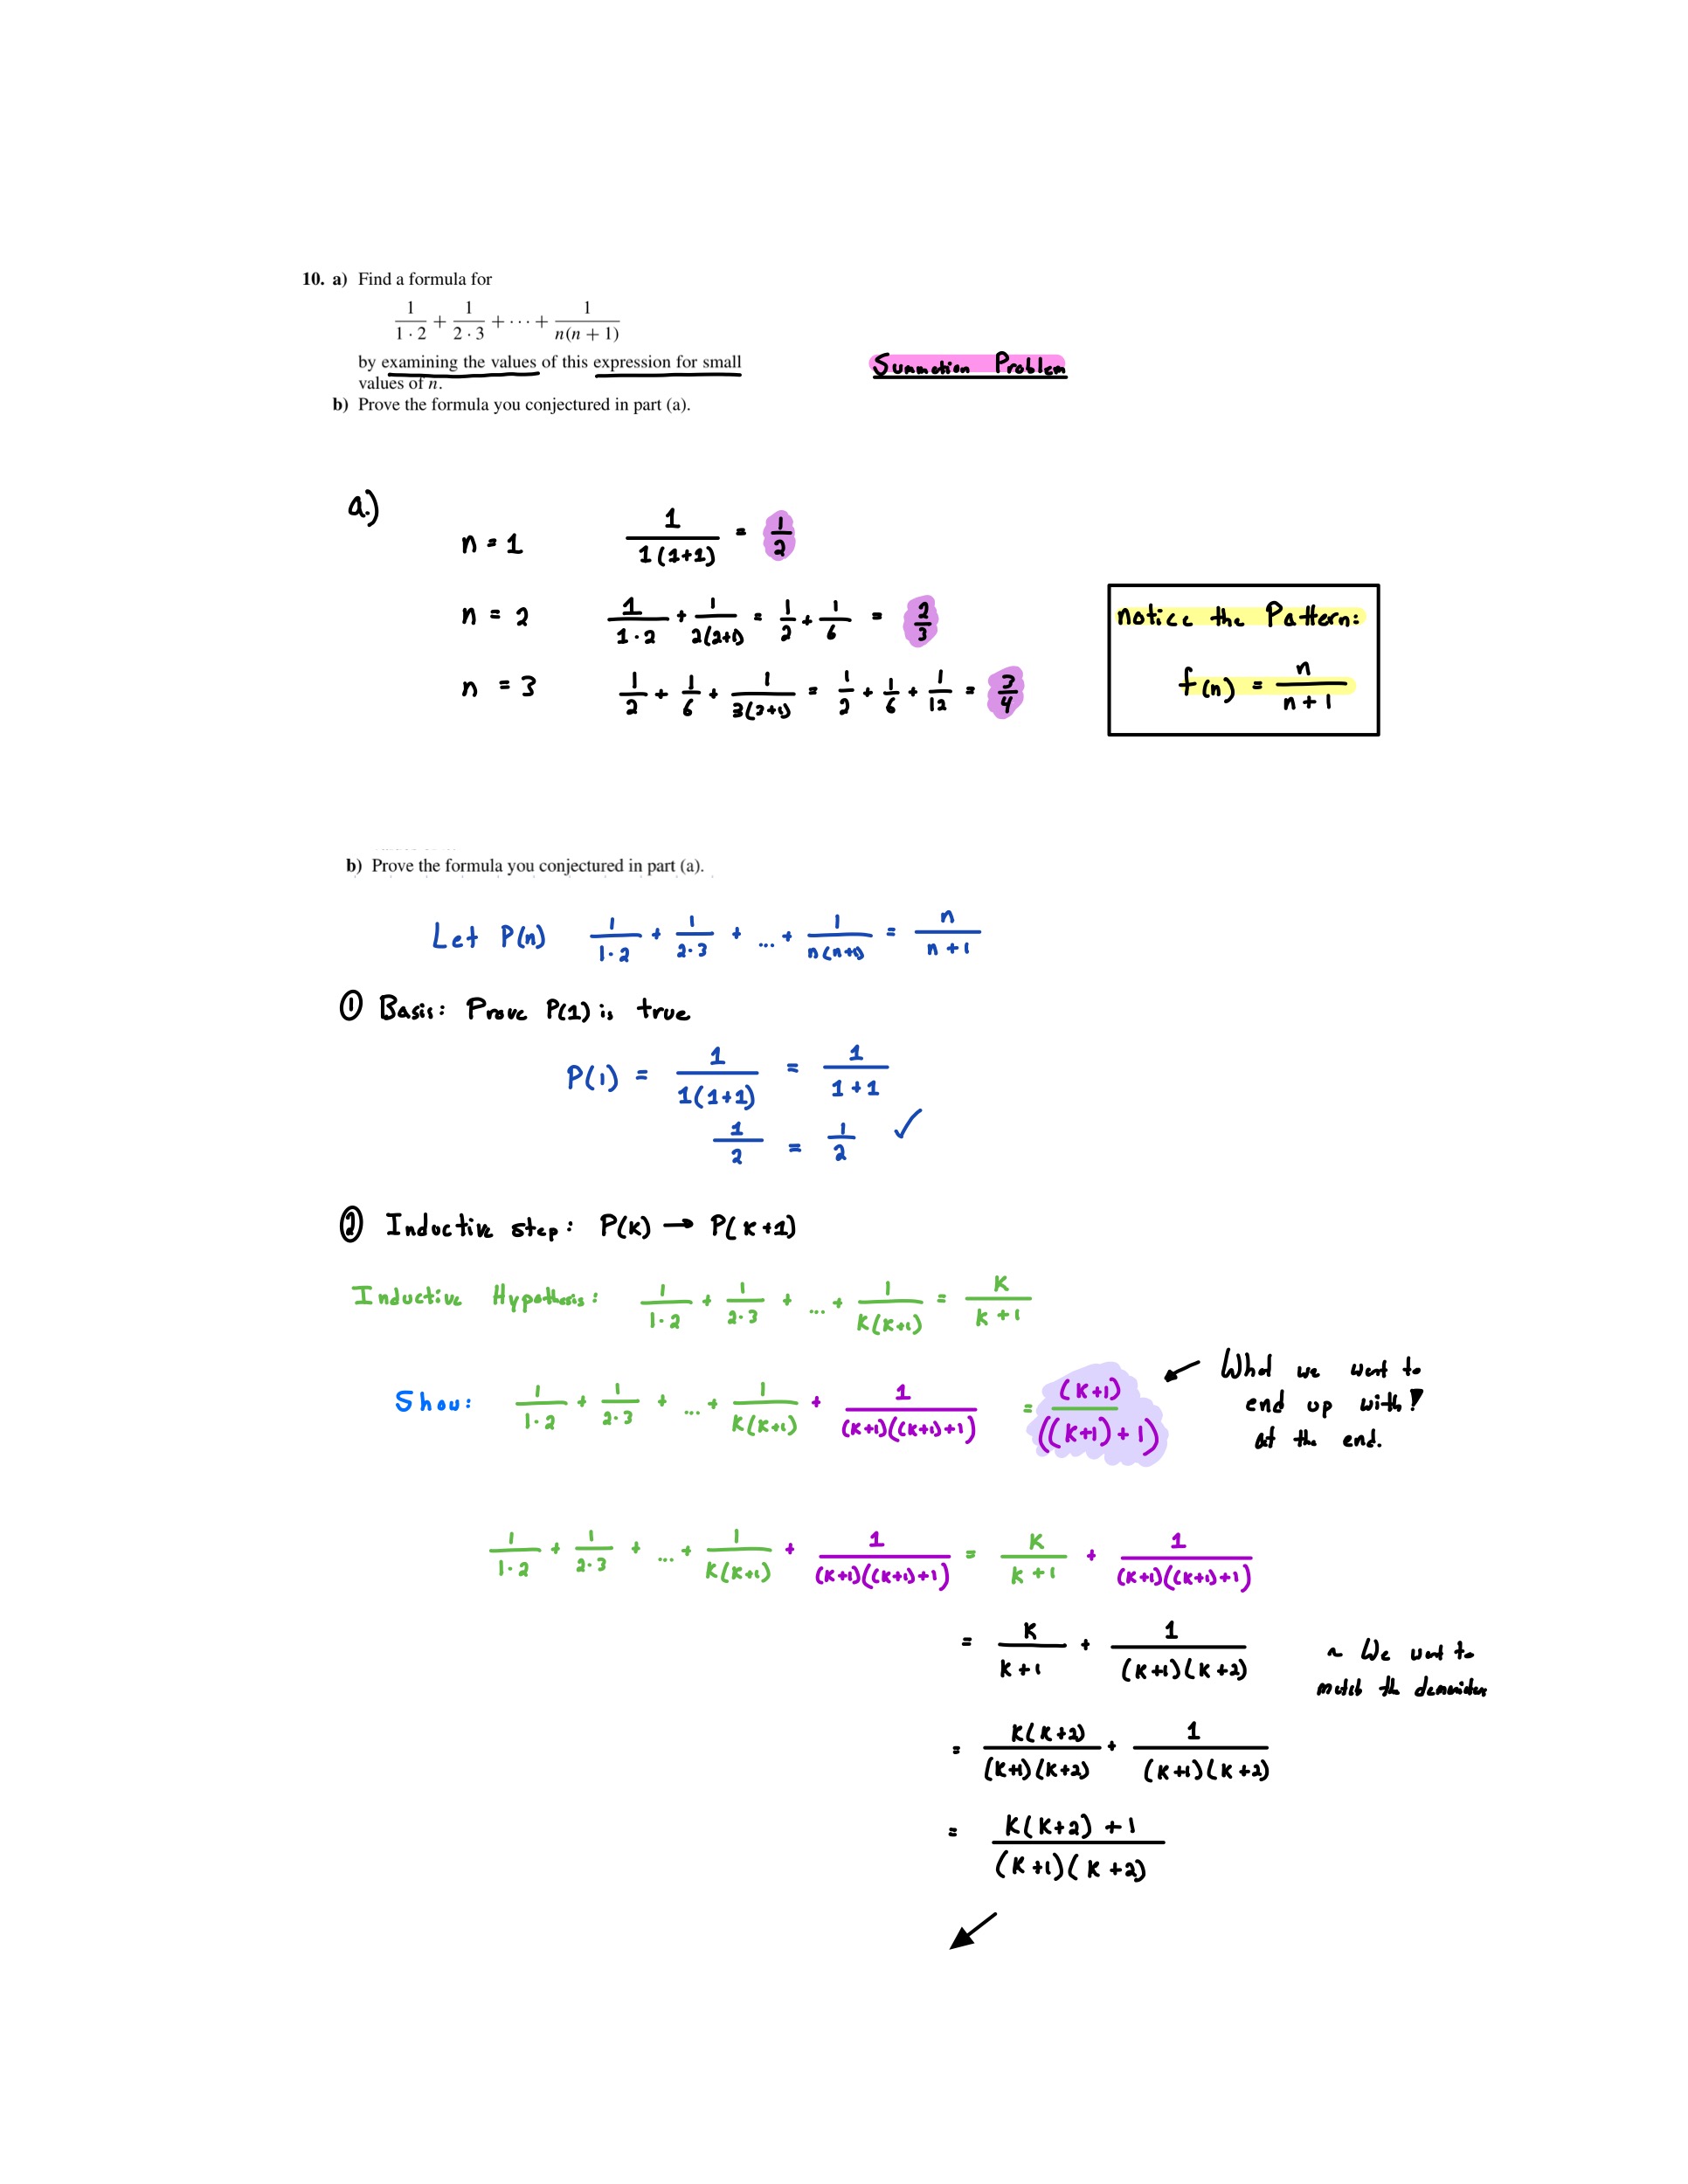 10. a) Find a formula for
1/(1 · 2) + 1/(2 · 3) + · · · + 1/(n(n + 1))
by examining the values of this expression for small
values of n.
Summation Problem
b) Prove the formula you conjectured in part (a).
a.)
n = 1 1/(1(1+1)) = 1/2
n = 2 1/(1·2) + 1/(2(2+1)) = 1/2 + 1/6 = 2/3
n = 3 1/2 + 1/6 + 1/(3(3+1)) = 1/2 + 1/6 + 1/12 = 3/4
notice the Pattern:
f(n) = n/(n+1)
b) Prove the formula you conjectured in part (a).
Let P(n) 1/(1·2) + 1/(2·3) + ... + 1/(n(n+1)) = n/(n+1)
① Basis: Prove P(1) is true
P(1) = 1/(1(1+1)) = 1/(1+1)
1/2 = 1/2 ✓
② Inductive step: P(K) → P(K+1)
Inductive Hypothesis: 1/(1·2) + 1/(2·3) + ... + 1/(K(K+1)) = K/(K+1)
Show: 1/(1·2) + 1/(2·3) + ... + 1/(K(K+1)) + 1/((K+1)((K+1)+1)) = (K+1)/((K+1)+1)
← What we want to
end up with!
at the end.
1/(1·2) + 1/(2·3) + ... + 1/(K(K+1)) + 1/((K+1)((K+1)+1)) = K/(K+1) + 1/((K+1)((K+1)+1))
= K/(K+1) + 1/((K+1)(K+2))
~ We want to
match the
= K(K+2)/((K+1)(K+2)) + 1/((K+1)(K+2))
= (K(K+2)+1)/((K+1)(K+2))